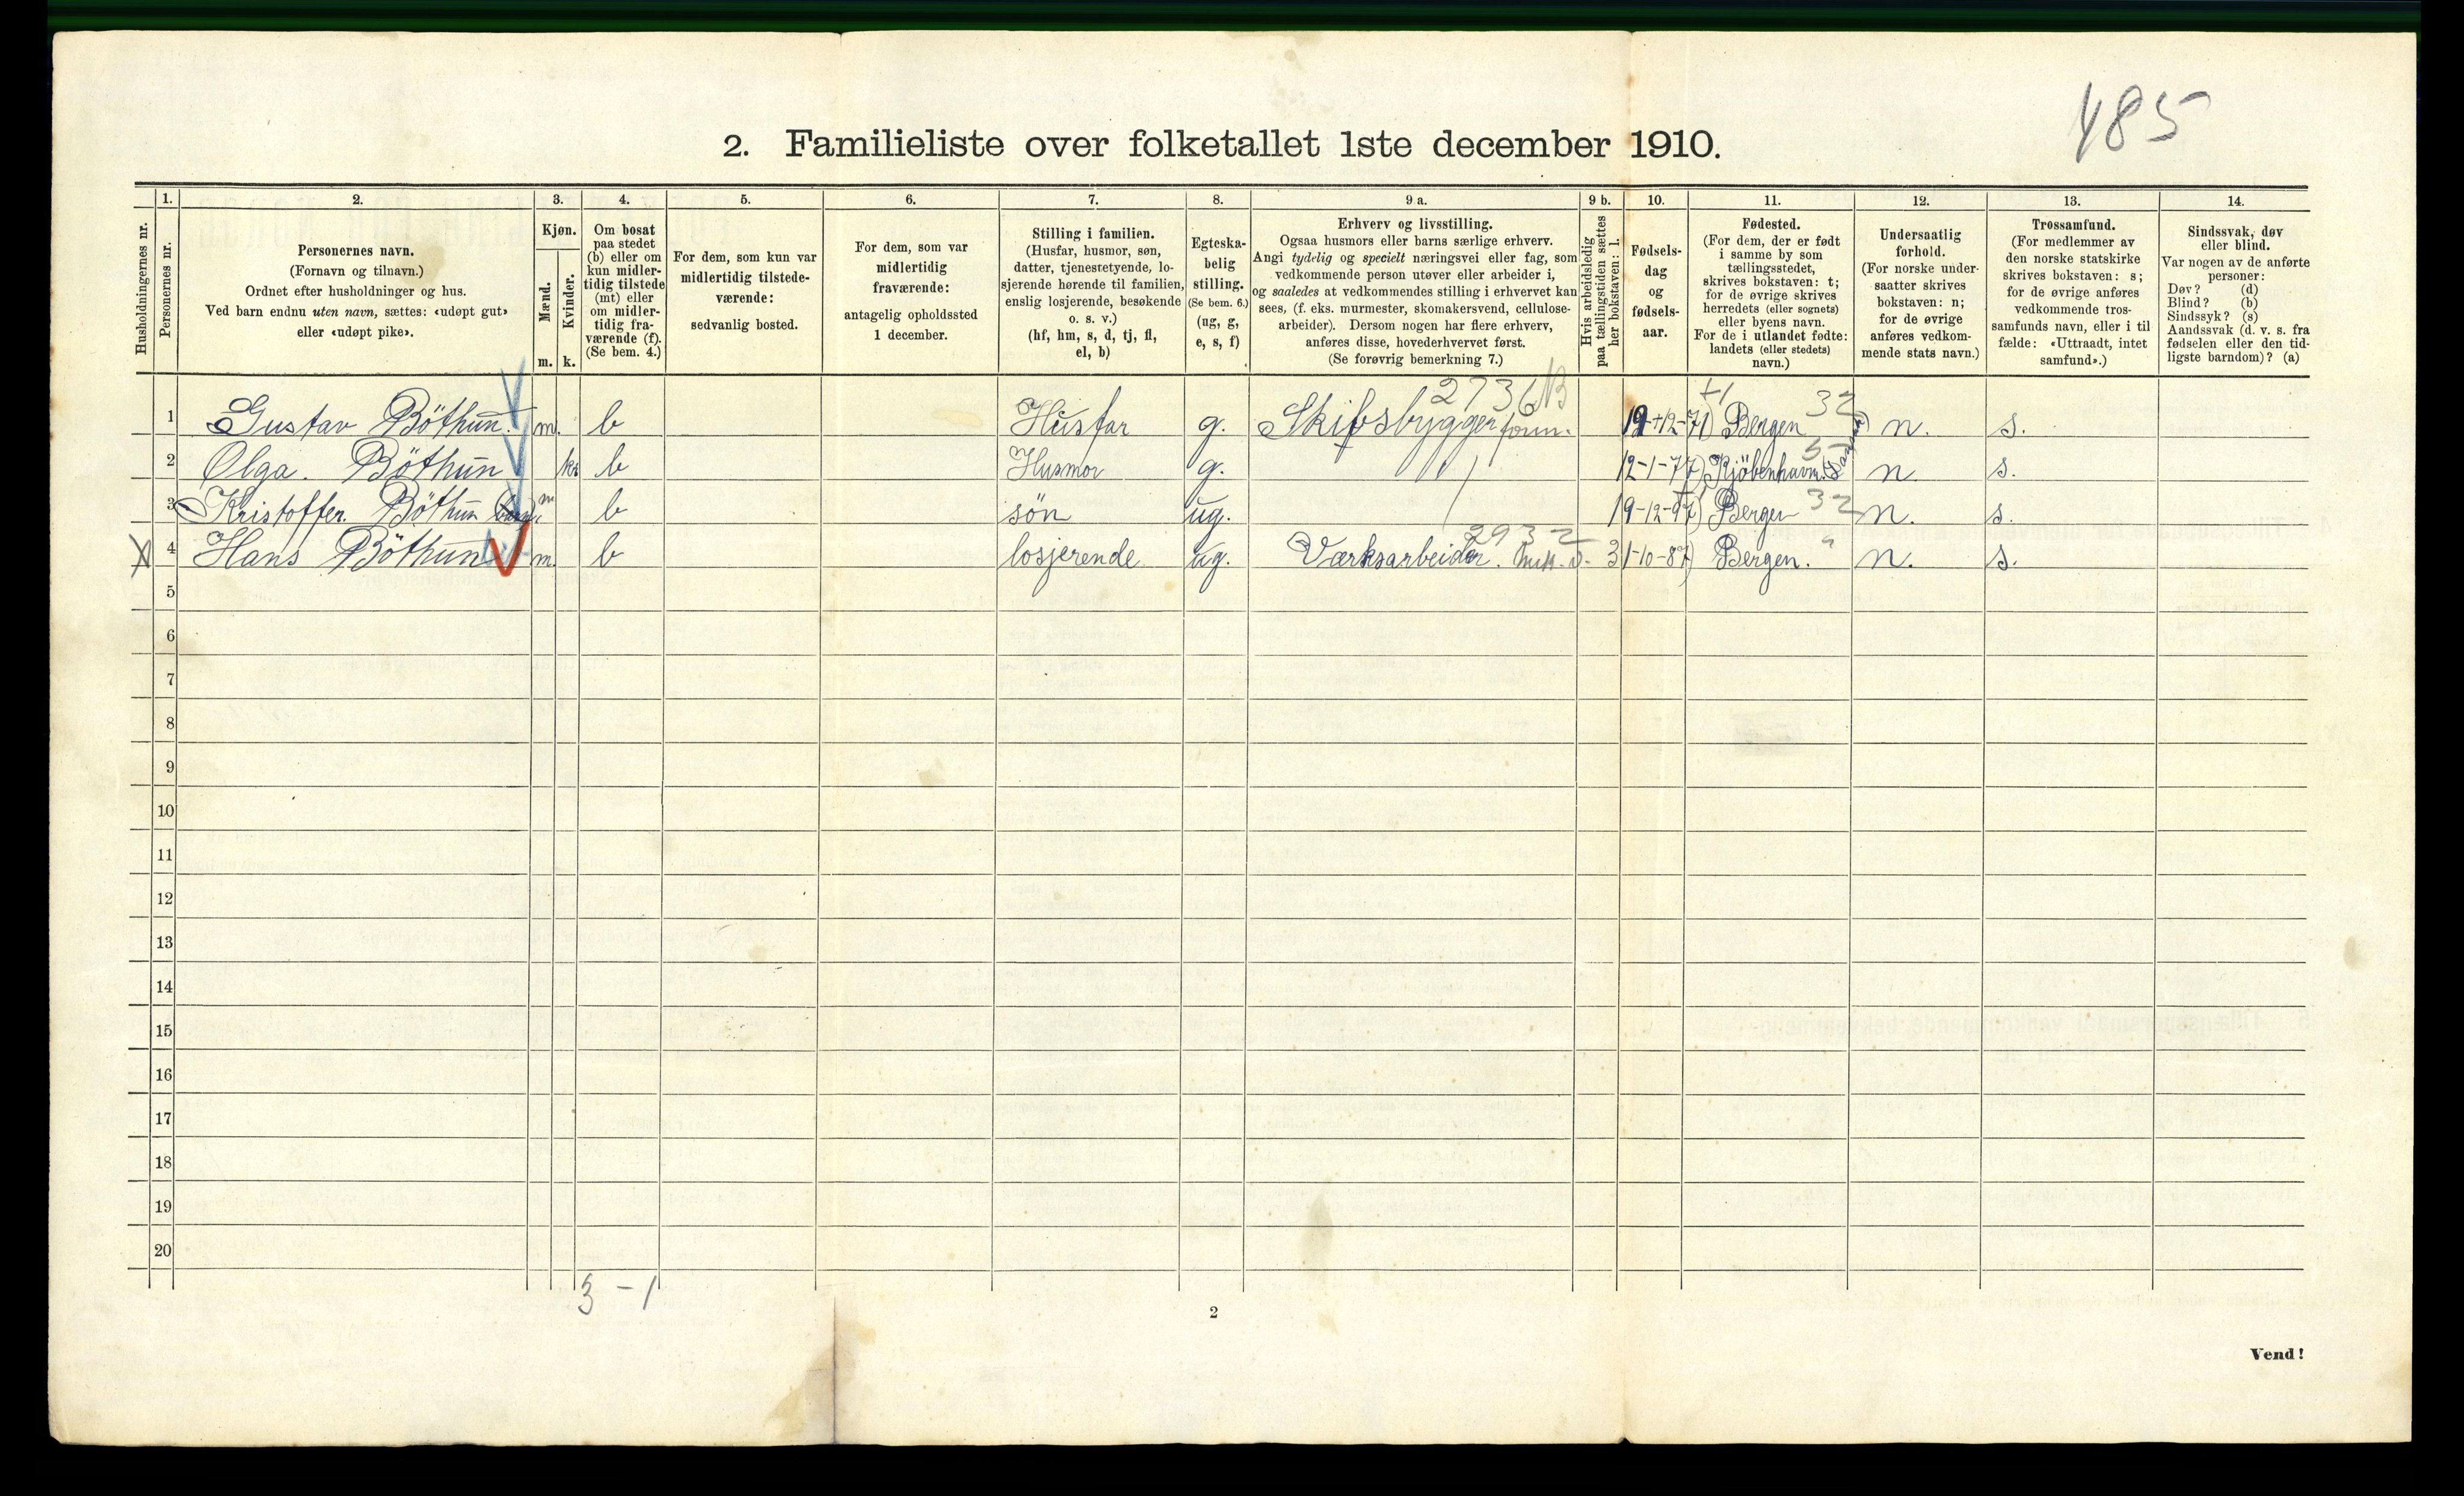 485
2. Familieliste over folketallet 1ste december 1910.
1. 2. 3. 4. 5. 6. 7. 8. 9 a. 9 b. 10. 11. 12. 13. 14.
Husholdningernes nr.
Personernes nr.
Personernes navn.
(Fornavn og tilnavn.)
Ordnet efter husholdninger og hus.
Ved barn endnu uten navn, sættes: «udøpt gut»
eller «udøpt pike».
Kjøn.
Mænd.
Kvinder.
m. k.
Om bosat
paa stedet
(b) eller om
kun midler-
tidig tilstede
(mt) eller
om midler-
tidig fra-
værende (f).
(Se bem. 4.)
For dem, som kun var
midlertidig tilstede-
værende:
sedvanlig bosted.
For dem, som var
midlertidig
fraværende:
antagelig opholdssted
1 december.
Stilling i familien.
(Husfar, husmor, søn,
datter, tjenestetyende, lo-
sjerende hørende til familien,
enslig losjerende, besøkende
o. s. v.)
(hf, hm, s, d, tj, fl,
el, b)
Egteska-
belig
stilling.
(Se bem. 6.)
(ug, g,
e, s, f)
Erhverv og livsstilling.
Ogsaa husmors eller barns særlige erhverv.
Angi tydelig og specielt næringsvei eller fag, som
vedkommende person utøver eller arbeider i,
og saaledes at vedkommendes stilling i erhvervet kan
sees, (f. eks. murmester, skomakersvend, cellulose-
arbeider). Dersom nogen har flere erhverv,
anføres disse, hovederhvervet først.
(Se forøvrig bemerkning 7.)
Hvis arbeidsledig
paa tællingstiden sættes
her bokstaven: l.
Fødsels-
dag
og
fødsels-
aar.
Fødested.
(For dem, der er født
i samme by som
tællingsstedet,
skrives bokstaven: t;
for de øvrige skrives
herredets (eller sognets)
eller byens navn.
For de i utlandet fødte:
landets (eller stedets)
navn.)
Undersaatlig
forhold.
(For norske under-
saatter skrives
bokstaven: n;
for de øvrige
anføres vedkom-
mende stats navn.)
Trossamfund.
(For medlemmer av
den norske statskirke
skrives bokstaven: s;
for de øvrige anføres
vedkommende tros-
samfunds navn, eller i til
fælde: «Uttraadt, intet
samfund».)
Sindssvak, døv
eller blind.
Var nogen av de anførte
personer:
Døv? (d)
Blind? (b)
Sindssyk? (s)
Aandssvak (d. v. s. fra
fødselen eller den tid-
ligste barndom)? (a)
2736 B 32
1 Gustav Böthun. m. b Husfar g. Skibsbygger form. 19-12-71 Bergen n. s.
2 Olga. Böthun k b Husmor g. 12-1-77 Kjöbenhavn. n. s.
3 Kristoffer. Böthun m b søn ug. 19-12-97 Bergen 32 n. s.
2932
X 4 Hans Böthun m. b losjerende ug. Værksarbeider. 31-10-87 Bergen. n. s.
5
6
7
8
9
10
11
12
13
14
15
16
17
18
19
20
3 - 1
2
Vend!